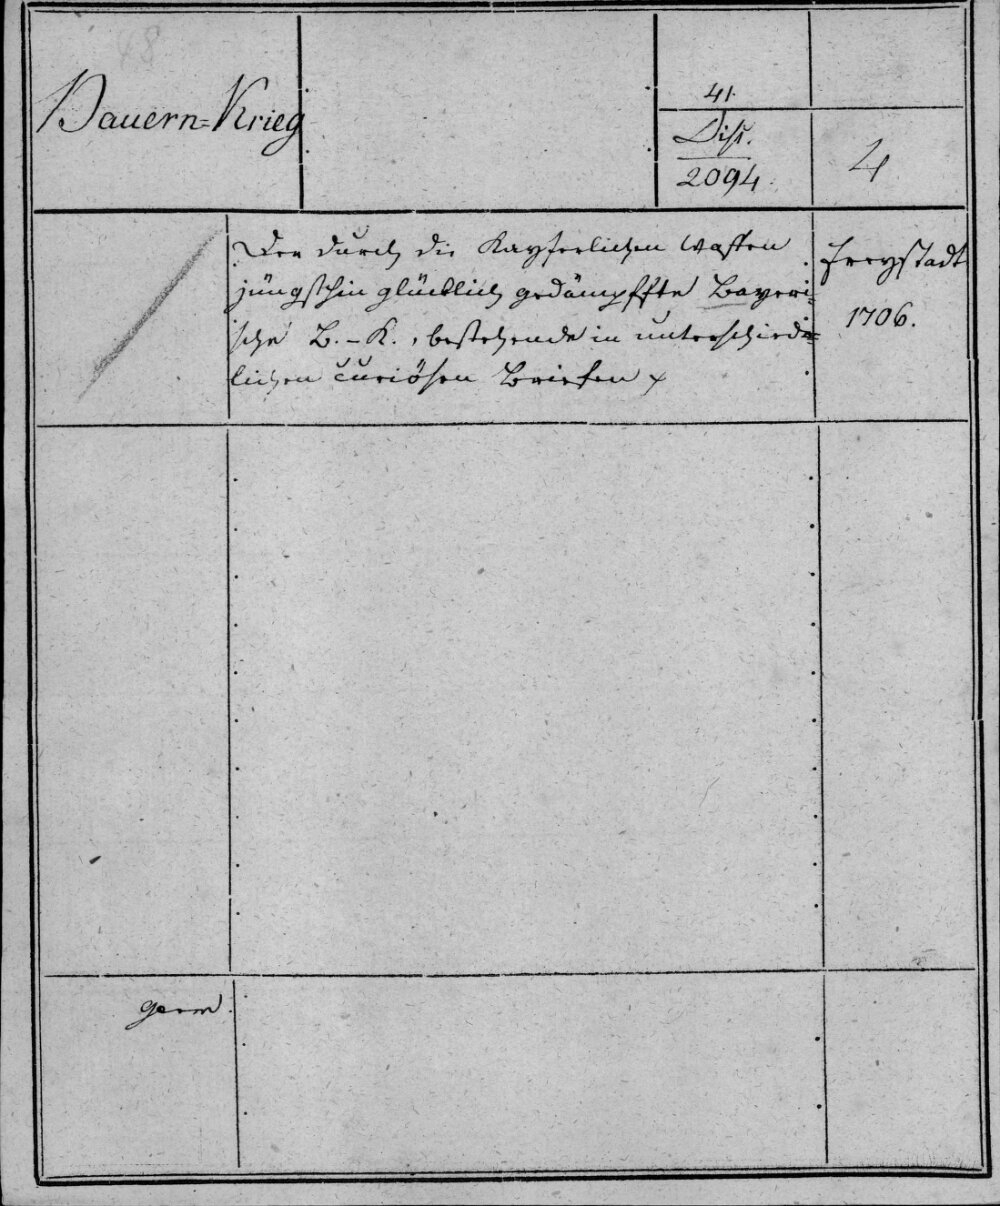 Bauern=Krieg
41.
Diss.
2094.
4
Der durch die Kayserlichen Waffen
jüngsthin glücklich gedämpffte Bayeri=
sche B.-K., bestehende in unterschied=
lichen curiösen Briefen
Freystadt
1706.
germ.